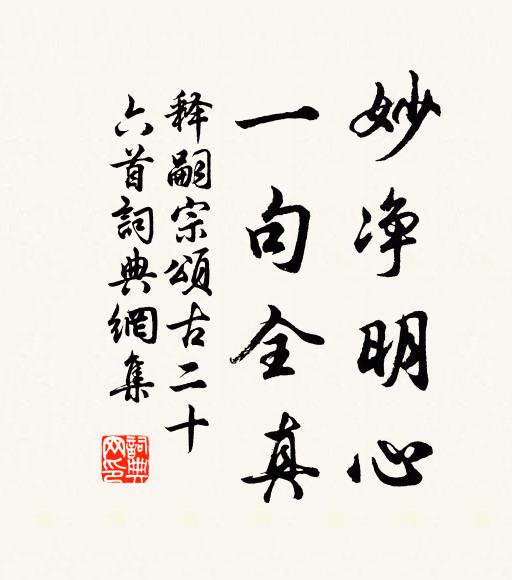 妙净明心
一句全真
释嗣宗頌古二十
六首詞典網集
詞典
网印